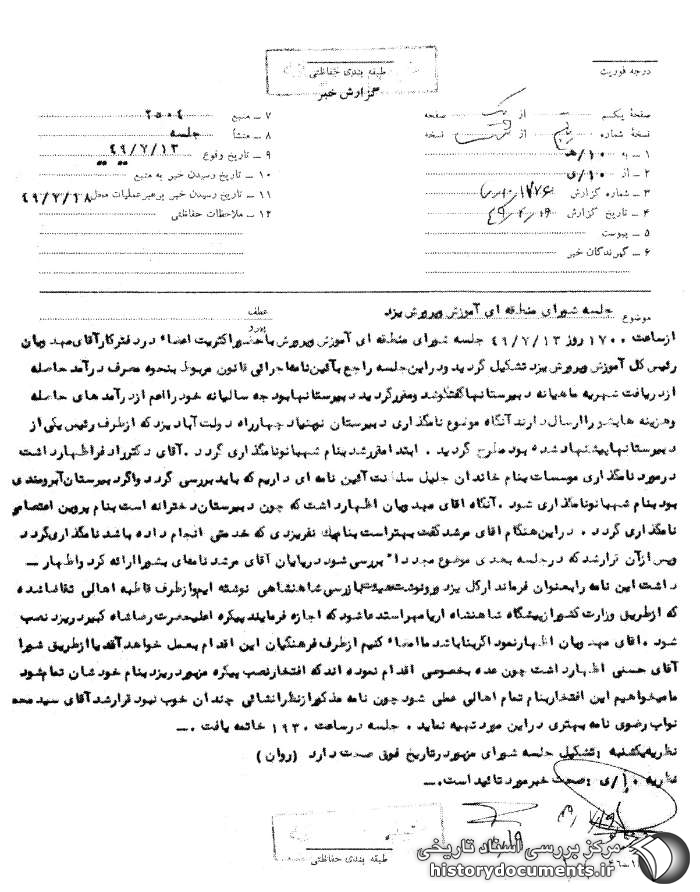 طبقه بندی حفاظتی
درجه فوریت
گزارش خبر
صفحهٔ یکم از یک صفحه
۷ ـ منبع ۲۵۰۴
نسخهٔ شماره از نسخه
۸ ـ منشأ جلسه
۱ ـ به ۱۰/هـ
۹ ـ تاریخ وقوع ۴۹/۷/۱۳
۲ ـ از ۱۰/ی
۱۰ ـ تاریخ رسیدن خبر به منبع
۳ ـ شماره گزارش
۱۱ ـ تاریخ رسیدن خبر برهبر عملیات محل ۴۹/۷/۱۸
۴ ـ تاریخ گزارش
۱۲ ـ ملاحظات حفاظتی
۵ ـ پیوست
۶ ـ گیرندگان خبر
موضوع جلسه شورای منطقه ای آموزش وپرورش یزد
عطف
پیرو
ازساعت ۱۷۰۰ روز ۴۹/۷/۱۳ جلسه شورای منطقه ای آموزش وپرورش باحضوراکثریت اعضاء دردفترکارآقای مهدویان
رئیس کل آموزش وپرورش یزد تشکیل گردید ودراین جلسه راجع بآئین نامه اجرائی قانون مربوط بنحوه مصرف درآمد حاصله
ازدریافت شهریه ماهیانه دبیرستانها گفتگو شد ومقررگردید دبیرستانها بودجه سالیانه خودرا اعم ازدرآمد های حاصله
وهزینه هابشورا ارسال دارند آنگاه موضوع نامگذاری دبیرستان نوبنیاد چهارراه دولت آباد یزد که ازطرف رئیس یکی از
دبیرستانها پیشنهاد شده بود مطرح گردید . ابتدا مقررشد بنام شهبانو نامگذاری گردد .آقای دکتر رادفر اظهارداشت
درمورد نامگذاری موسسات بنام خاندان جلیل سلطنت آئین نامه ای داریم که باید بررسی گردد واگردبیرستان آبرومندی
بود بنام شهبانو نامگذاری شود .آنگاه آقای مهدویان اظهارداشت که چون دبیرستان دخترانه است بنام پروین اعتصامی
نامگذاری گردد . دراین هنگام آقای مرشد گفت بهتراست بنام یک نفریزدی که خدمتی انجام داده باشد نامگذاری گردد
وپس ازآن قرارشد که درجلسه بعدی موضوع مجدداً بررسی شود درپایان آقای مرشد نامه ای بشورا ارائه کرد واظهار ـ
داشت این نامه رابعنوان فرماندارکل یزد ورونوشت بازرسی شاهنشاهی نوشته ایم وازطرف قاطبه اهالی تقاضا شده
که ازطریق وزارت کشور ازپیشگاه شاهنشاه آریامهر استدعا شود که اجازه فرمایند پیکره اعلیحضرت رضاشاه کبیردریزد نصب
شود .آقای مهدویان اظهارنمود اگربنا باشد ما امضاء کنیم ازطرف فرهنگیان این اقدام بعمل خواهد آمد یا ازطریق شورا
آقای حسنی اظهارداشت چون عده بخصوصی اقدام نموده اند که افتخارنصب پیکره مزبور دریزد بنام خودشان تمام شود
مامیخواهیم این افتخاربنام تمام اهالی عملی شود چون نامه مذکورازنظرانشائی چندان خوب نبود قرارشد آقای سید محمد
نواب رضوی نامه بهتری دراین مورد تهیه نماید . جلسه درساعت ۱۹۳۰ خاتمه یافت .ـ
نظریه یکشنبه : تشکیل جلسه شورای مزبور درتاریخ فوق صحت دارد (روان)
نظریه ۱۰/ی : صحت خبر مورد تائید است.ـ
طبقه بندی حفاظتی
مرکز بررسی اسناد تاریخی
historydocuments.ir